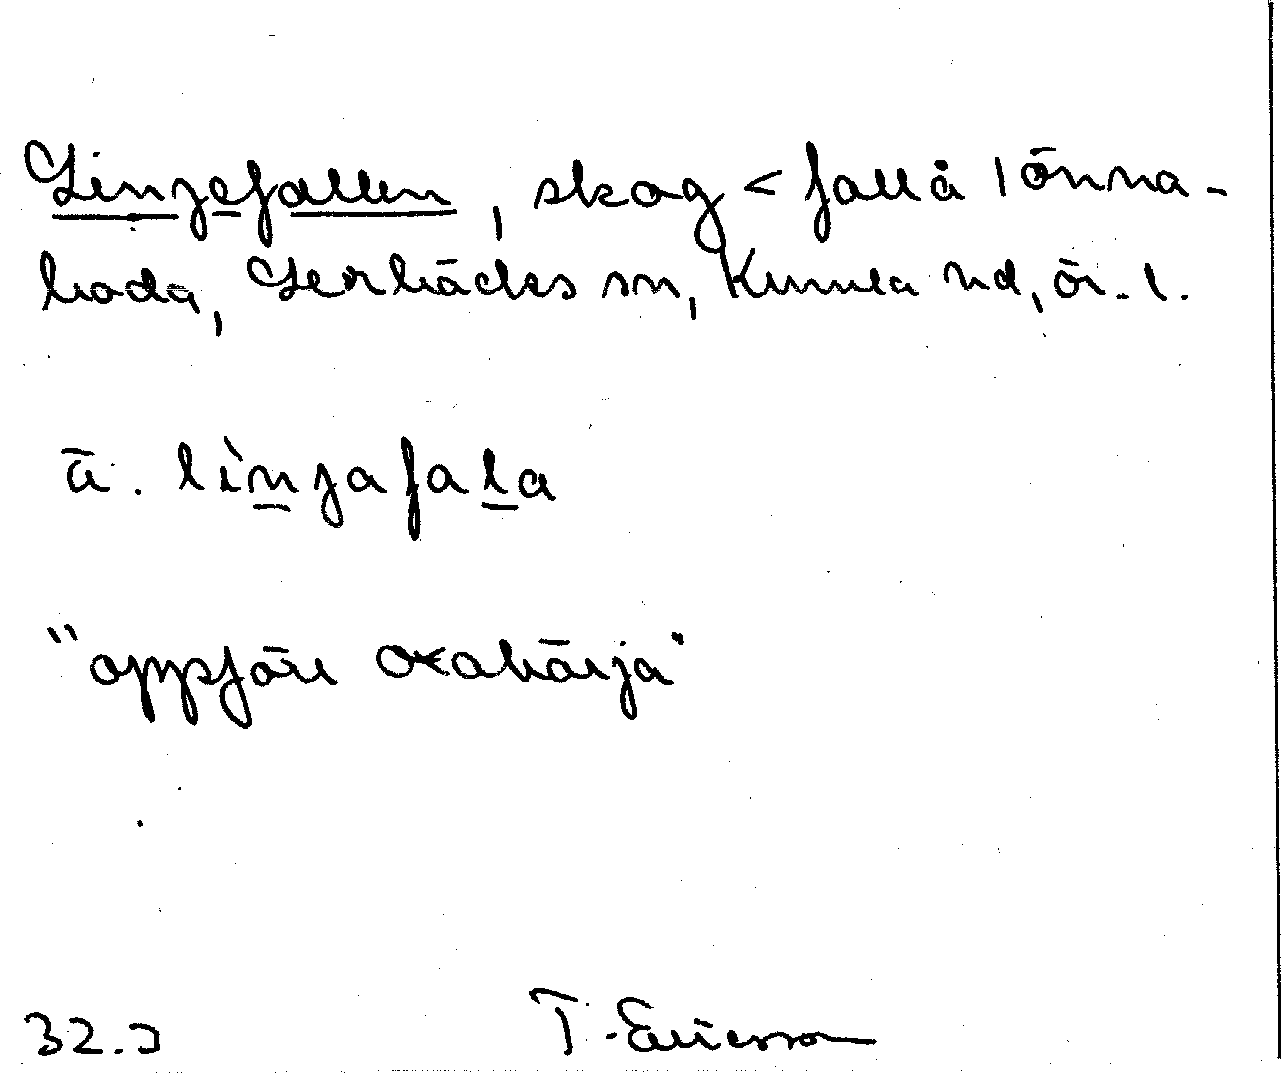 Linjefallen, skog < fall å Tönna-
boda, Lerbäcks sn, Kumla hd, Ör. l.
ā. lìnjafala
"oppför Oxabärja"
32.
T. Ericsson